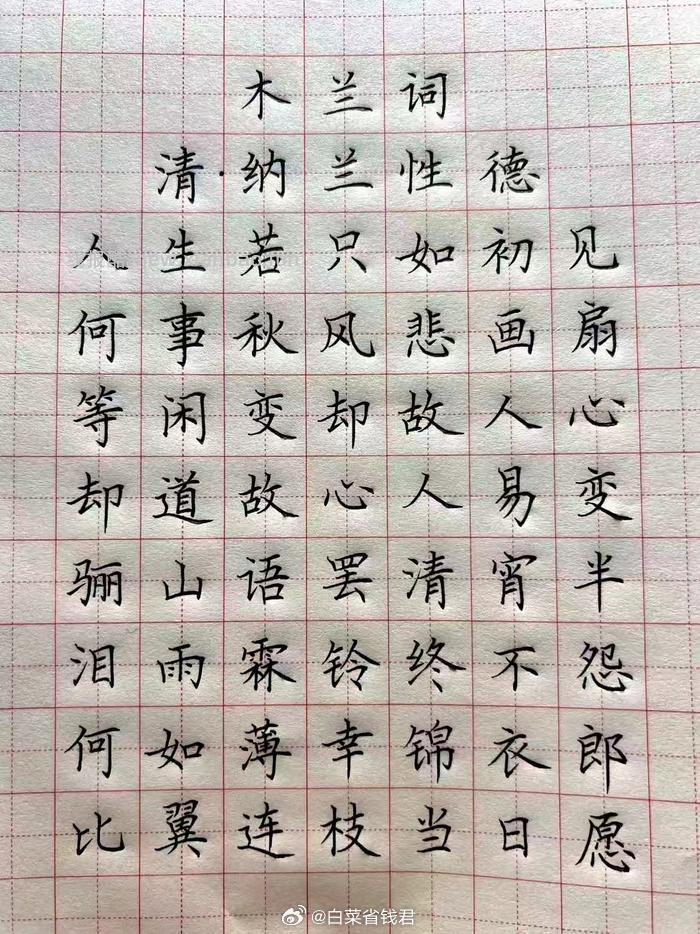 木兰词
清·纳兰性德
人生若只如初见
何事秋风悲画扇
等闲变却故人心
却道故心人易变
骊山语罢清宵半
泪雨霖铃终不怨
何如薄幸锦衣郎
比翼连枝当日愿
@白菜省钱君